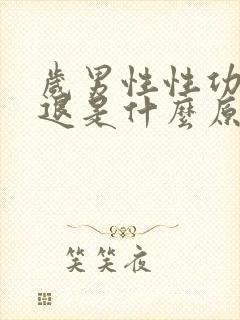 歲男性性功
退是什麼原
笑笑夜